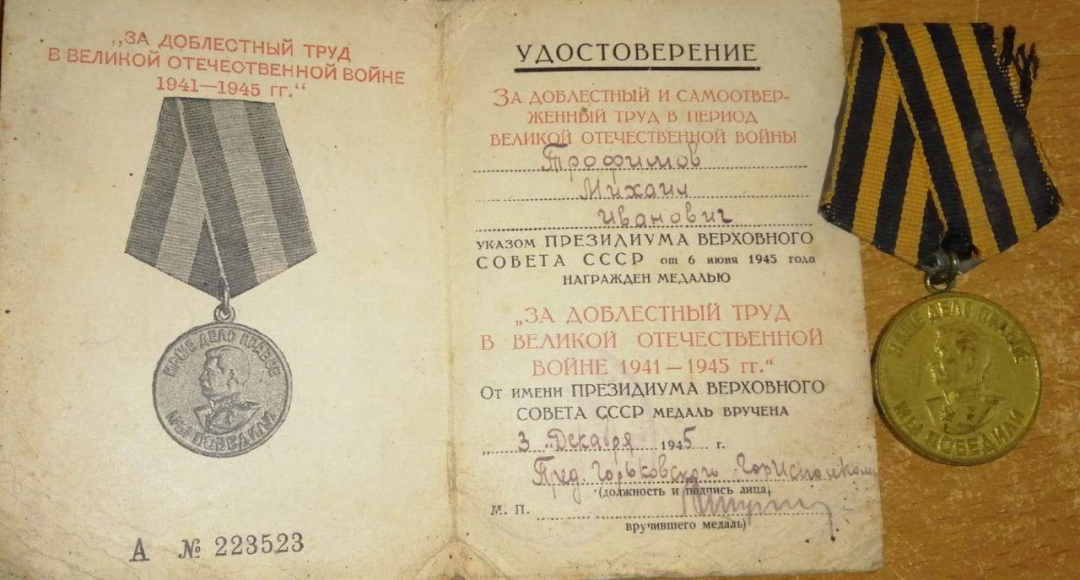 „ЗА ДОБЛЕСТНЫЙ ТРУД
В ВЕЛИКОЙ ОТЕЧЕСТВЕННОЙ ВОЙНЕ
1941—1945 гг.“
НАШЕ ДЕЛО ПРАВОЕ
МЫ ПОБЕДИЛИ
А № 223523
УДОСТОВЕРЕНИЕ
ЗА ДОБЛЕСТНЫЙ И САМООТВЕР-
ЖЕННЫЙ ТРУД В ПЕРИОД
ВЕЛИКОЙ ОТЕЧЕСТВЕННОЙ ВОЙНЫ
Трофимов
Михаил
Иванович
УКАЗОМ ПРЕЗИДИУМА ВЕРХОВНОГО
СОВЕТА СССР от 6 июня 1945 года
НАГРАЖДЕН МЕДАЛЬЮ
„ЗА ДОБЛЕСТНЫЙ ТРУД
В ВЕЛИКОЙ ОТЕЧЕСТВЕННОЙ
ВОЙНЕ 1941—1945 гг.“
От имени ПРЕЗИДИУМА ВЕРХОВНОГО
СОВЕТА СССР МЕДАЛЬ ВРУЧЕНА
„3 „Декабря 1945 г.
Пред. Горьковского Горисполкома
(должность и подпись лица,
М. П.
вручившего медаль)
НАШЕ ДЕЛО ПРАВОЕ
МЫ ПОБЕДИЛИ